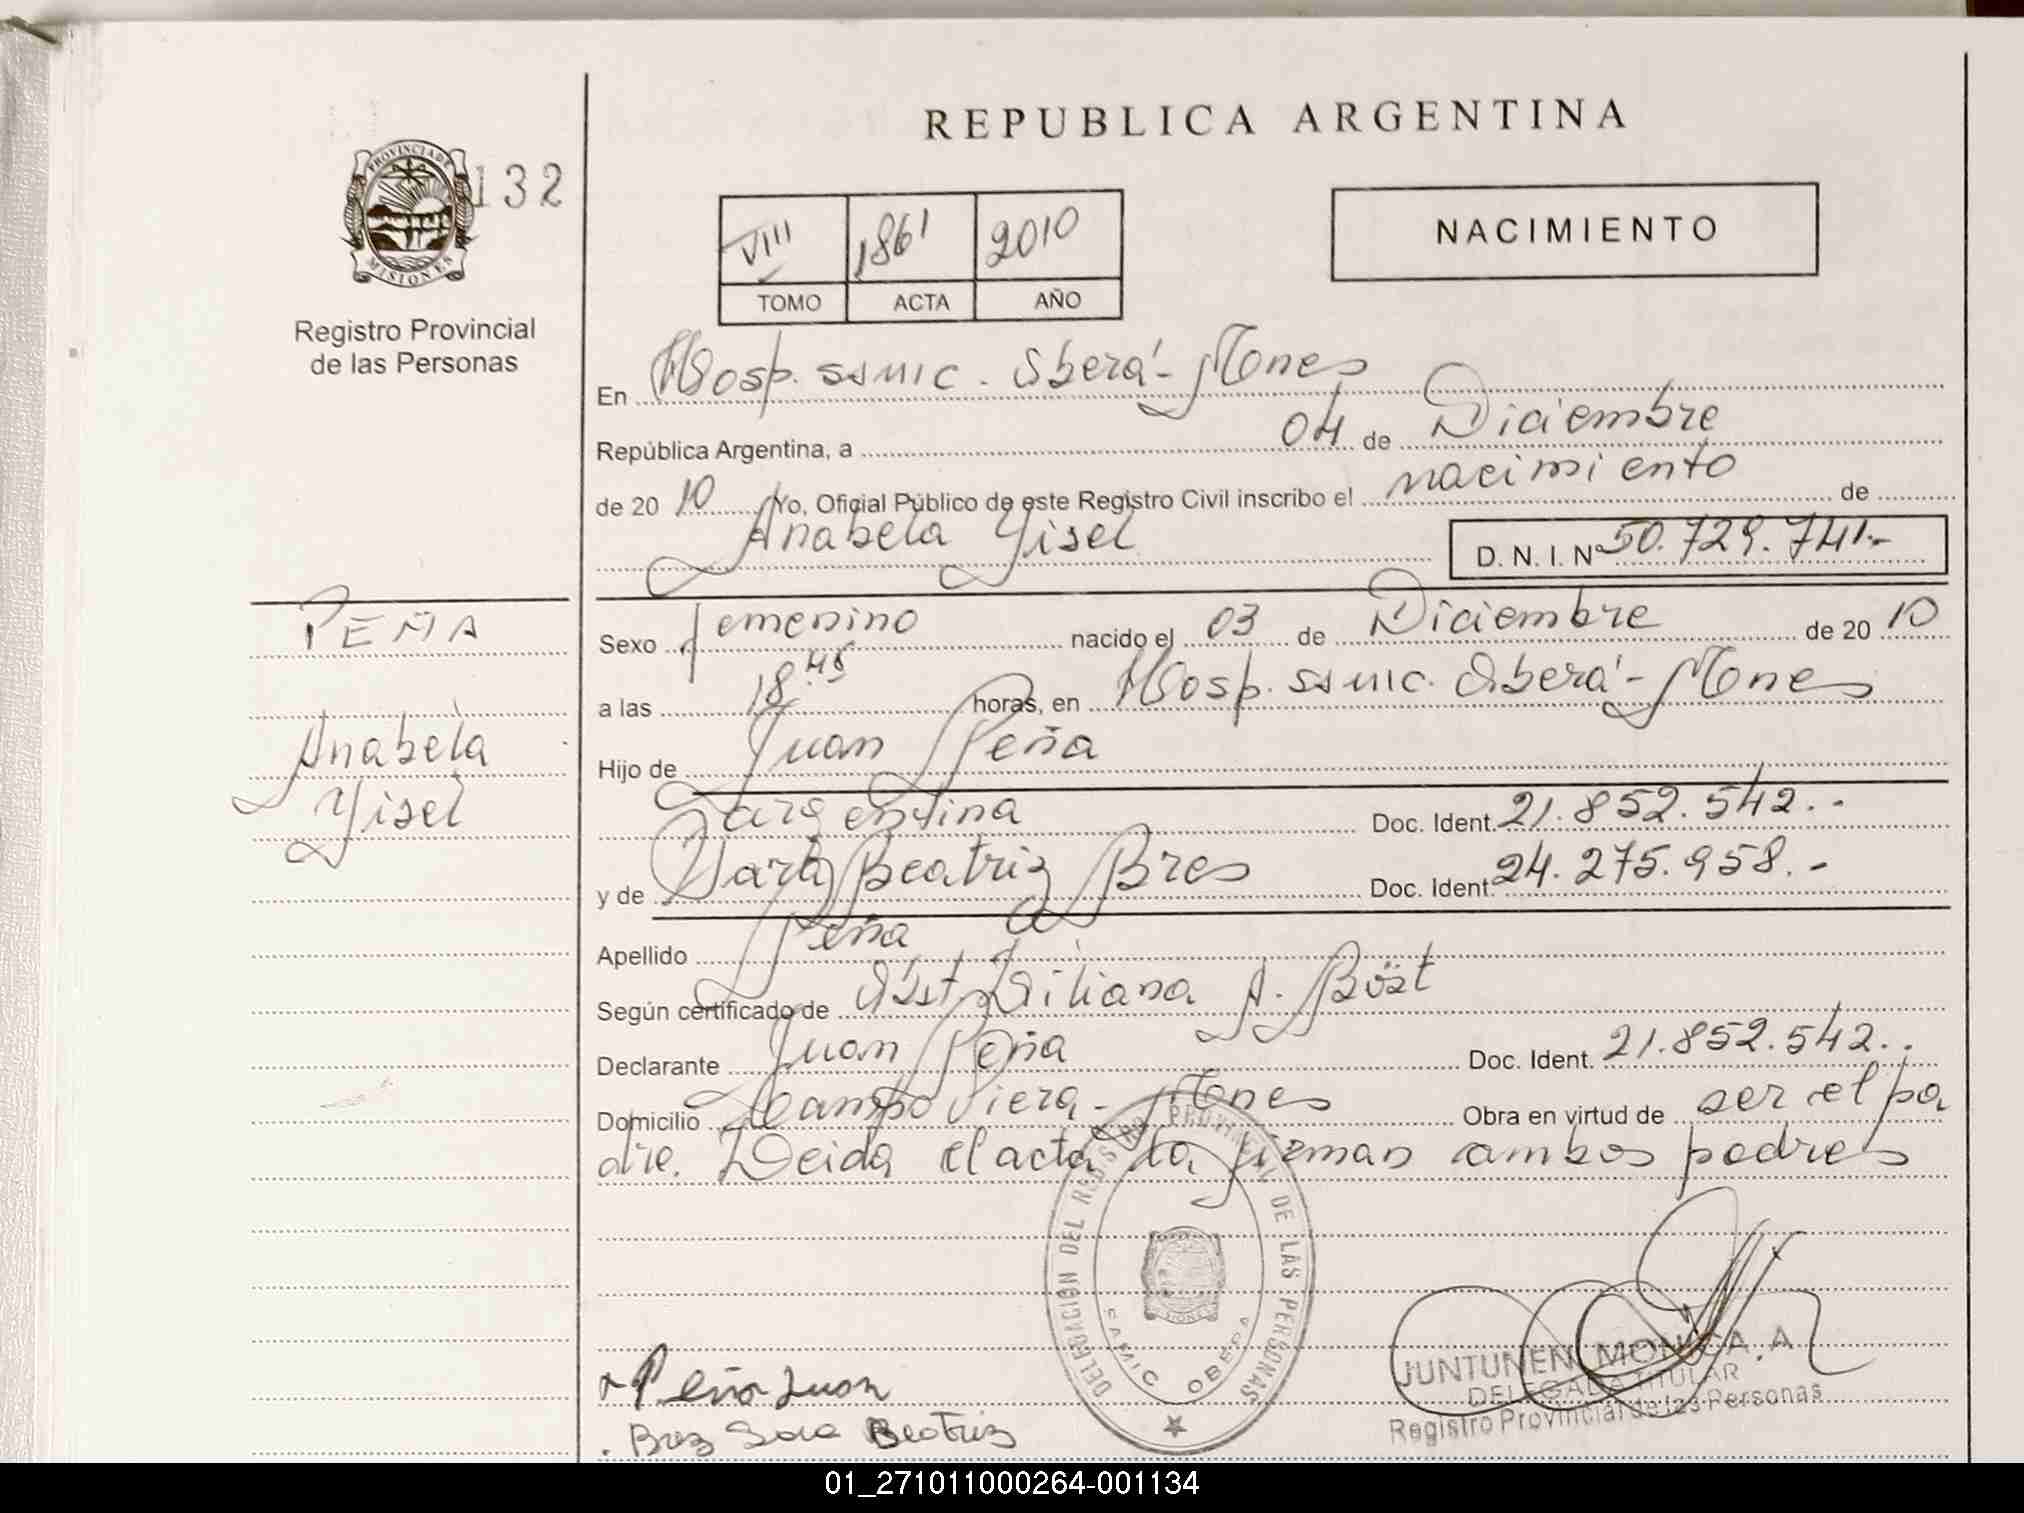 REPUBLICA ARGENTINA
PROVINCIA DE
MISIONES
132
Registro Provincial
de las Personas
VIII 1861 2010
TOMO ACTA AÑO
NACIMIENTO
En Hosp. SSMIC. Oberá - Mones
República Argentina, a 04 de Diciembre
de 2010 Yo, Oficial Público de este Registro Civil inscribo el nacimiento de
Anabela Yisel D. N. I. Nº 50.729.741.-
PEÑA
Anabela
Yisel
Sexo femenino nacido el 03 de Diciembre de 2010
a las 18.45 horas, en Hosp. SSMIC. Oberá - Mones
Hijo de Juan Peña
argentina Doc. Ident. 21.852.542..
y de Sara Beatriz Bres Doc. Ident. 24.275.958.-
Apellido Peña
Según certificado de Obst. Liliana A. Böst
Declarante Juan Peña Doc. Ident. 21.852.542..
Domicilio Campo Viera - Mones Obra en virtud de ser el pa
dre. Leida el acta la firman ambos padres
DELEGACION DEL REGISTRO PROVINCIAL DE LAS PERSONAS
OBERA
Peña Juan
Brez Sara Beatriz
JUNTUNEN MONICA. A
DELEGADA TITULAR
Registro Provincial de las Personas
01_271011000264-001134